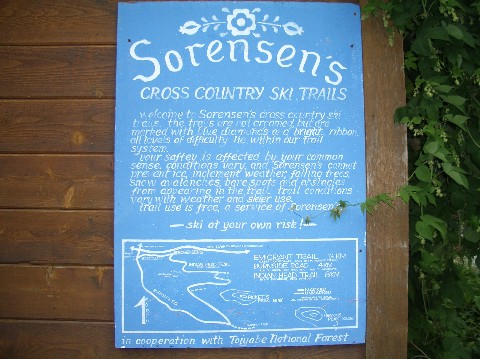 Sorensen's
CROSS COUNTRY SKI TRAILS
welcome to Sorensen's cross country ski
trails. the trails are not groomed but are
marked with blue diamonds and bright ribbon.
all levels of difficulty lie within our trail
system.
your saftey is affected by your common
sense. conditions vary and Sorensen's cannot
prevent ice, inclement weather, falling trees,
snow avalanches, bare spots and obstacles
from appearing in the trail. trail conditions
vary with weather and skier use.
trail use is free, a service of Sorensen's
— ski at your own risk! —
EMIGRANT TRAIL KM
BURNSIDE ROAD 4KM
INDIAN HEAD TRAIL KM
in cooperation with Toiyabe National Forest